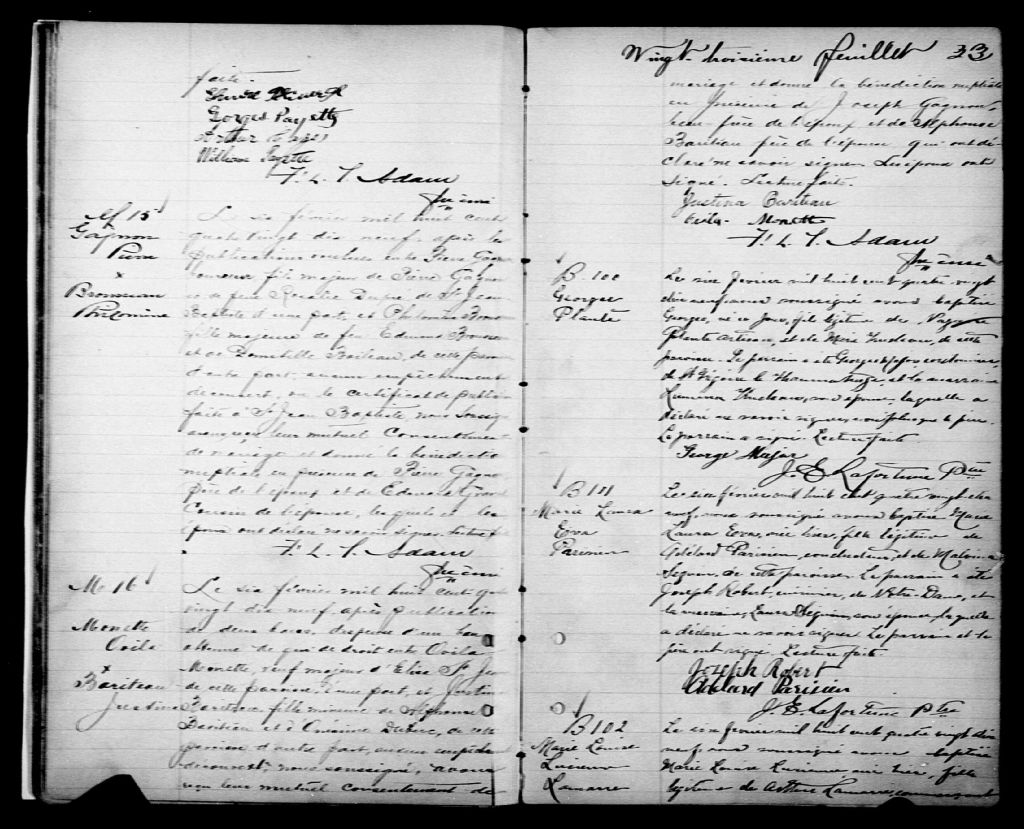 faite.
Georges Payette
Arthur
William Payette
F. L. T. Adam
Ptre curé
M 15
Gagnon
Pierre
x
Philomène
Le six février mil huit cent
quatre vingt dix neuf, après les
publications entre Pierre Gagnon
fils majeur de Pierre Gagnon
de feue Rosalie Dupré de St Jean
Baptiste d'une part, et Philomène
fille majeure de feu Edmond
et de Domithilde Bariteau, de cette paroisse
d'autre part, aucun empêchement
découvert, vu le certificat de publication
faite à St Jean Baptiste nous soussigné
avons reçu leur mutuel consentement
de mariage et donné la bénédiction
nuptiale en présence de Pierre Gagnon
père de l'époux et de Edmond
Cousin de l'épouse, lesquels et les
époux ont déclaré ne savoir signer. Lecture f
F. L. T. Adam
Ptre curé
M 16
Monette
Ovila
x
Bariteau
Justine
Le six février mil huit cent quatre
vingt dix neuf, après publication
de deux bancs, dispense d'un ban
obtenue de qui de droit entre Ovila
Monette, veuf majeur d'Elise St Jean
de cette paroisse d'une part, et Justine
Bariteau fille mineure de Alphonse
Bariteau et d'Onésime Dubuc, de cette
paroisse d'autre part, aucun empêchement
découvert, nous soussigné, avons
reçu leur mutuel consentement de
Vingt-troisième feuillet 23
mariage et donné la bénédiction nuptiale
en présence de Joseph Gagnon,
beau-frère de l'époux et de Alphonse
Bariteau père de l'épouse qui ont dé-
claré ne savoir signer. Les époux ont
signé. Lecture faite.
Justina Bariteau
Ovila Monette
F. L. T. Adam
Ptre curé
B. 100
Georges
Plante
Le six février mil huit cent quatre vingt
dix neuf nous soussigné avons baptisé
Georges, né ce jour, fils légitime de
Plante artisan, et de Marie Trudeau, de cette
paroisse. Le parrain a été George Major cordonnier,
de St Grégoire le Thaumaturge et la marraine
Trudeau, son épouse, laquelle a
déclaré ne savoir signer, ainsi que le père.
Le parrain a signé. Lecture faite
George Major
J. E. Lafortune Ptre
B 101
Marie Laura
Eova
Parisien
Le six février mil huit cent quatre vingt dix
neuf, nous soussigné avons baptisé Marie
Laura Eova, née hier, fille légitime de
Adélard Parisien, conducteur, et de Malvina
Seguin, de cette paroisse. Le parrain a été
Joseph Robert, de Notre Dame, et
la marraine, Laura Seguin, son épouse, laquelle
a déclaré ne savoir signer. Le parrain et le
père ont signé. Lecture faite.
Joseph Robert
Adélard Parisien
J. E. Lafortune Ptre
B 102
Marie Louise
Lucienne
Lamarre
Le six février mil huit cent quatre vingt dix
neuf, nous soussigné avons baptisé
Marie Louise Lucienne née hier, fille
légitime de Arthur Lamarre, commerçant